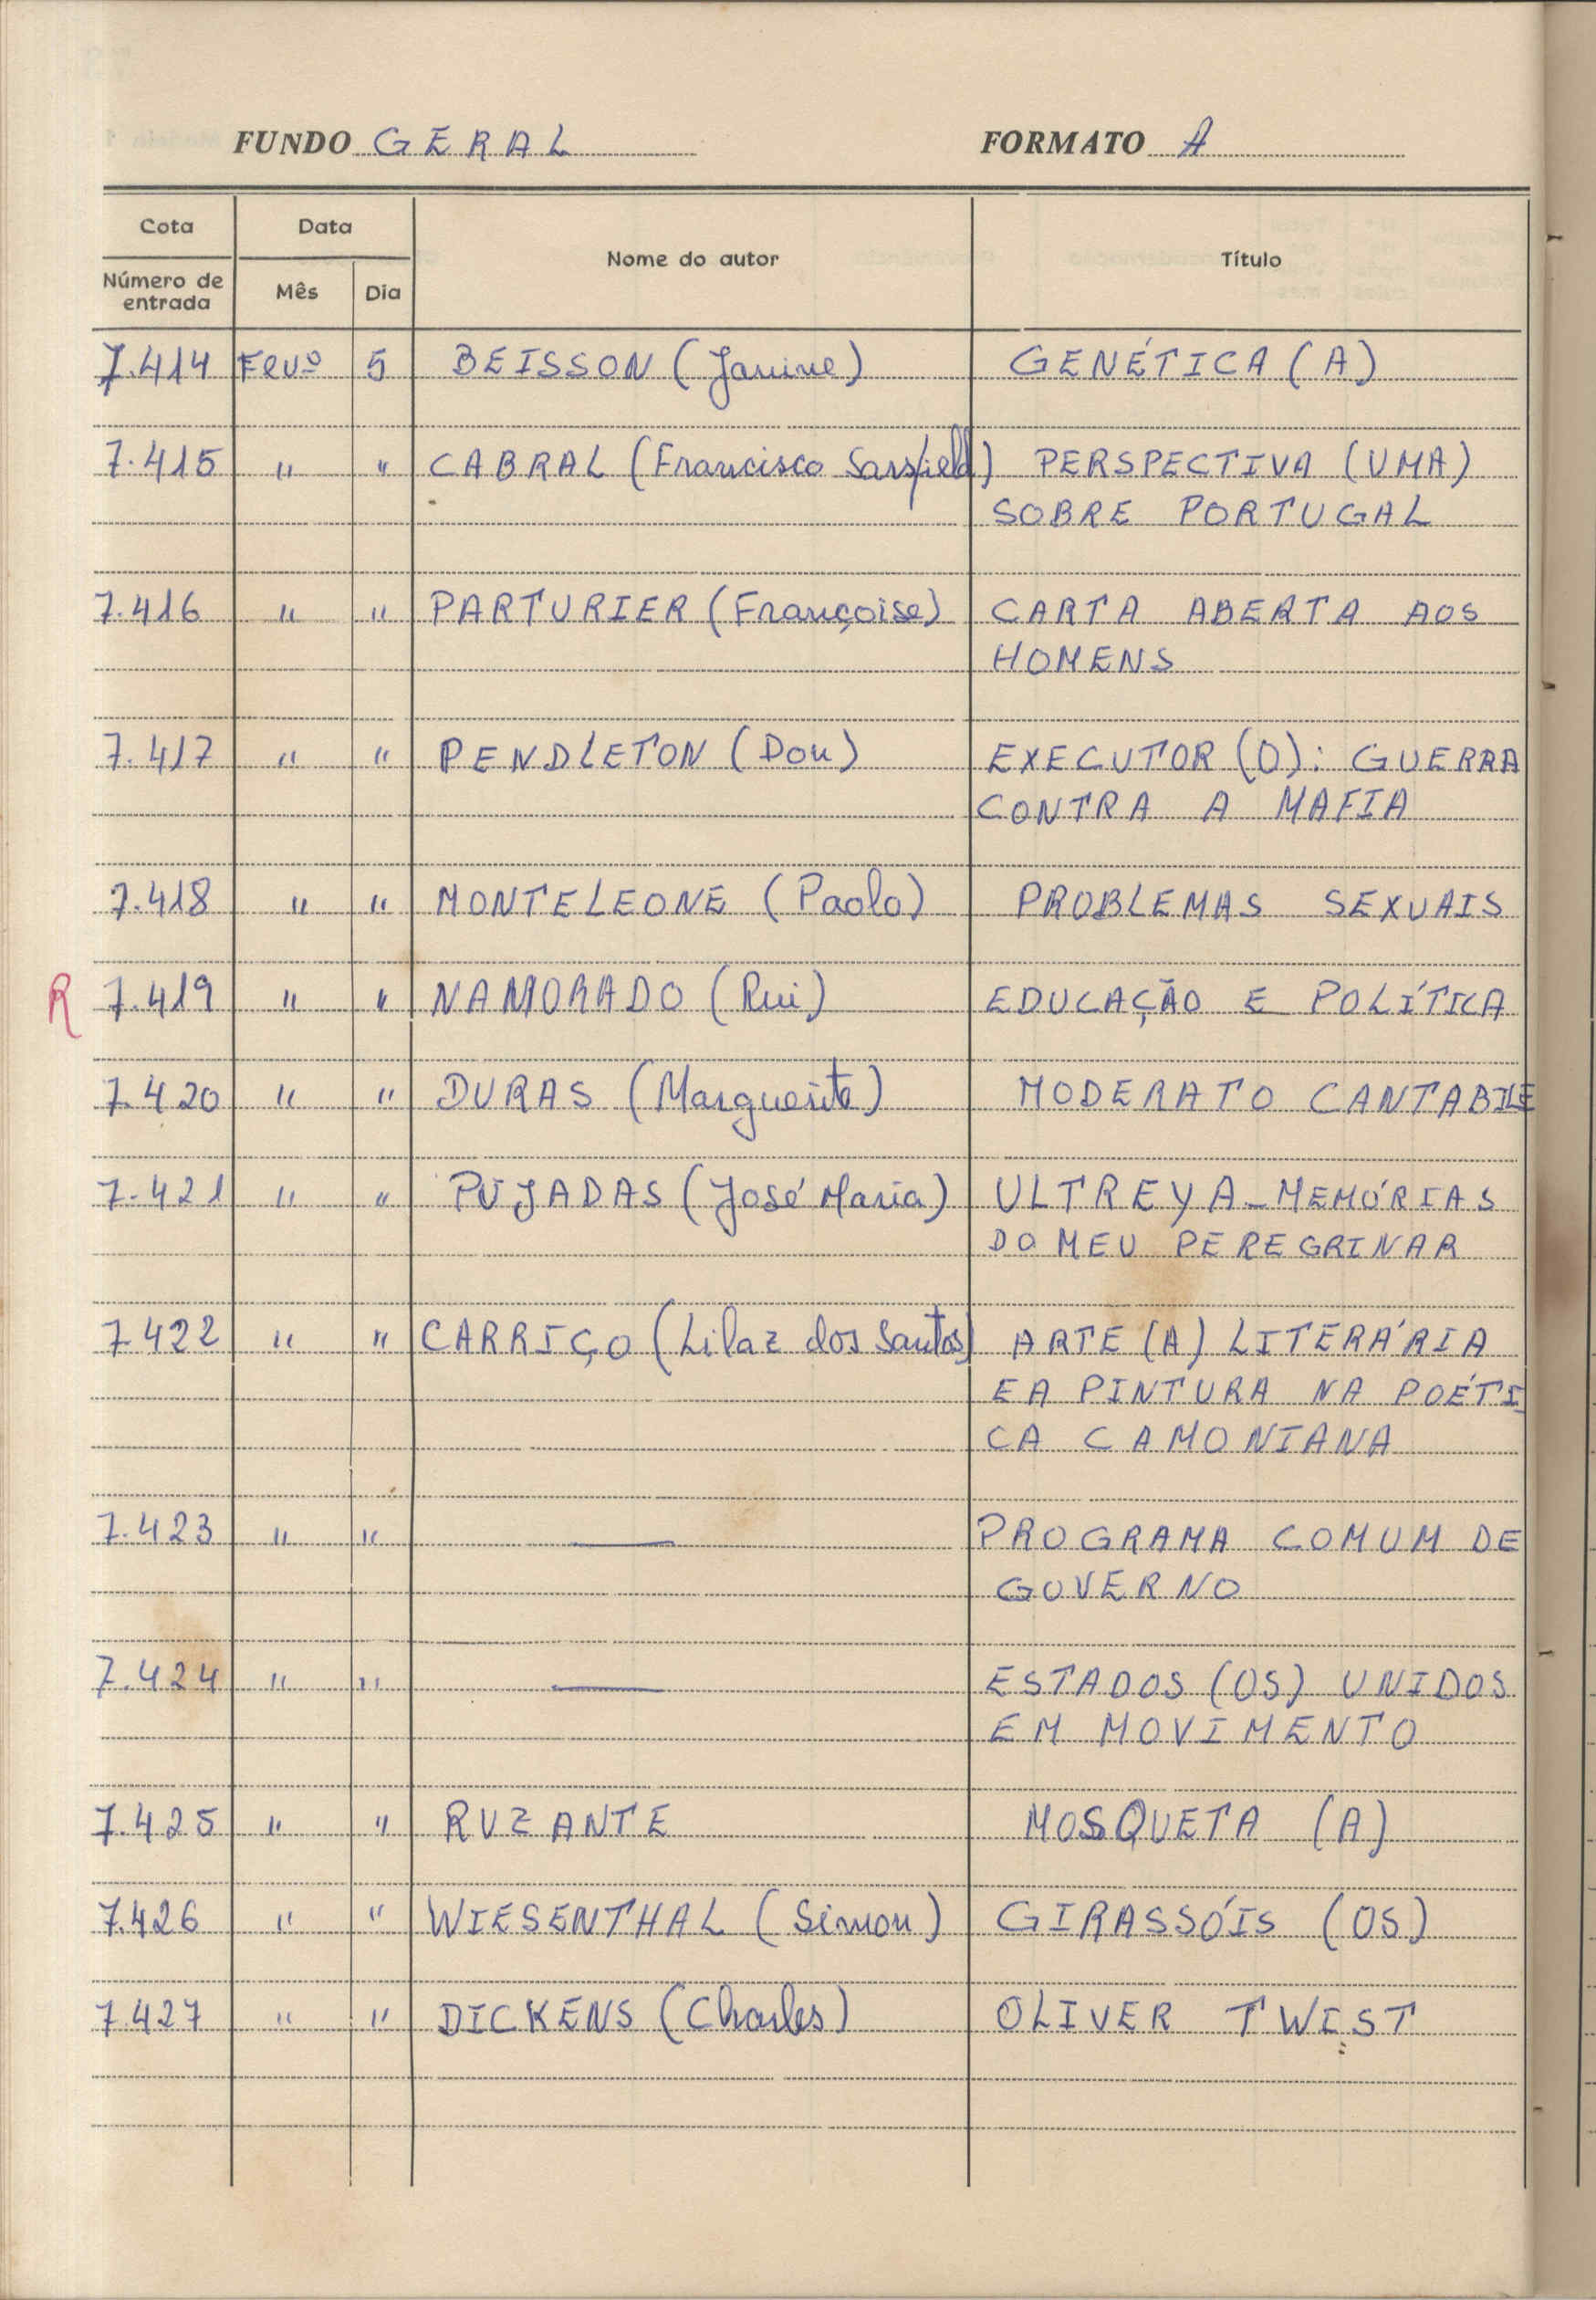 FUNDO GERAL FORMATO A
Cota Data Nome do autor Título
Número de entrada Mês Dia
7.414 Fevº 5 BEISSON (Janine) GENÉTICA (A)
7.415 " " CABRAL (Francisco Sarsfield) PERSPECTIVA (UMA)
SOBRE PORTUGAL
7.416 " " PARTURIER (Françoise) CARTA ABERTA AOS
HOMENS
7.417 " " PENDLETON (Don) EXECUTOR (O): GUERRA
CONTRA A MAFIA
7.418 " " MONTELEONE (Paolo) PROBLEMAS SEXUAIS
R 7.419 " " NAMORADO (Rui) EDUCAÇÃO E POLÍTICA
7.420 " " DURAS (Marguerite) MODERATO CANTABILE
7.421 " " PUJADAS (José Maria) ULTREYA - MEMÓRIAS
DO MEU PEREGRINAR
7.422 " " CARRIÇO (Lilaz dos Santos) ARTE (A) LITERÁRIA
E A PINTURA NA POÉTI
CA CAMONIANA
7.423 " " — PROGRAMA COMUM DE
GOVERNO
7.424 " " — ESTADOS (OS) UNIDOS
EM MOVIMENTO
7.425 " " RUZANTE MOSQUETA (A)
7.426 " " WIESENTHAL (Simon) GIRASSÓIS (OS)
7.427 " " DICKENS (Charles) OLIVER TWIST